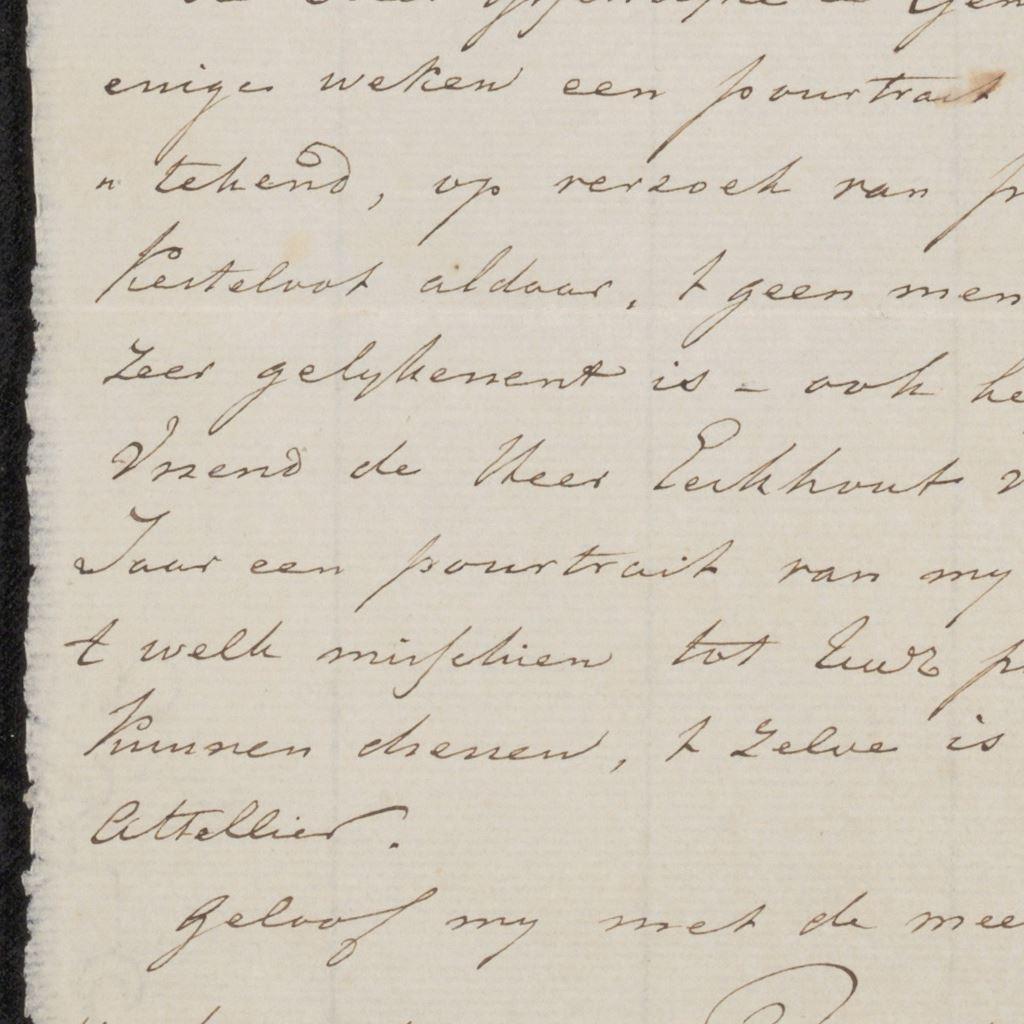 enige weken een pourtrait
" tekend, op verzoek van
Kesteloot aldaar, t geen men
zeer gelykenent is – ook he
Vriend de Heer Eeckhout
Jaar een pourtrait van my
t welk misschien tot
kunnen dienen, t zelve is
Attellier.
Geloof my met de mee